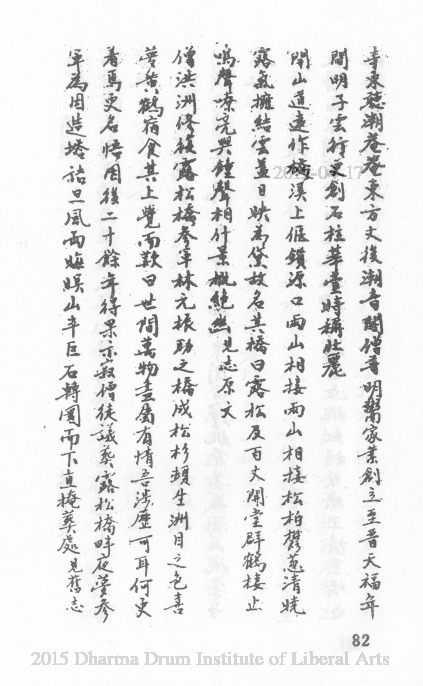 寺東聽潮菴菴東方丈後潮音閣僧晋明鬻家業創立至晋天福年
間明子雲行又創石柱華臺時稱壯麗
閑山道遠作橋溪上偃鎖源口兩山相接兩山相接松柏欝葱清曉
露氣擁結雲蓋日映為黛故名其橋曰露松及百丈開堂群鶴接止
鳴聲嘹亮與鐘聲相什景概絕幽見志原文
僧洪洲修後露松橋參軍林元振助之橋成松杉頓生洲目之色喜
夢黃鶴宿食其上覺而歎曰世間萬物盡屬有情吾涉歷可耳何更
着焉更名悟因後二十餘年得果示寂僧徒議葬露松橋畔夜夢參
軍為因造墖詰旦風雨晦暝山半巨石轉圜而下直掩葬處見舊志
82
2015 Dharma Drum Institute of Liberal Arts